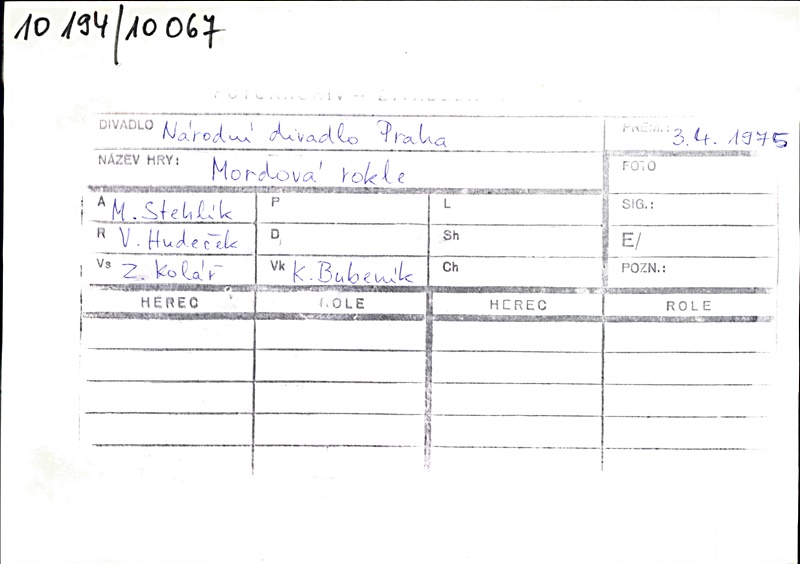 10 194/10 067
DIVADLO Národní divadlo Praha PREM.: 3.4. 1975
NÁZEV HRY: Mordová rokle FOTO
A M. Stehlík P L SIG.:
R V. Hudeček D Sh E/
Vs Z. Kolář Vk K. Bubeník Ch POZN.:
HEREC ROLE HEREC ROLE